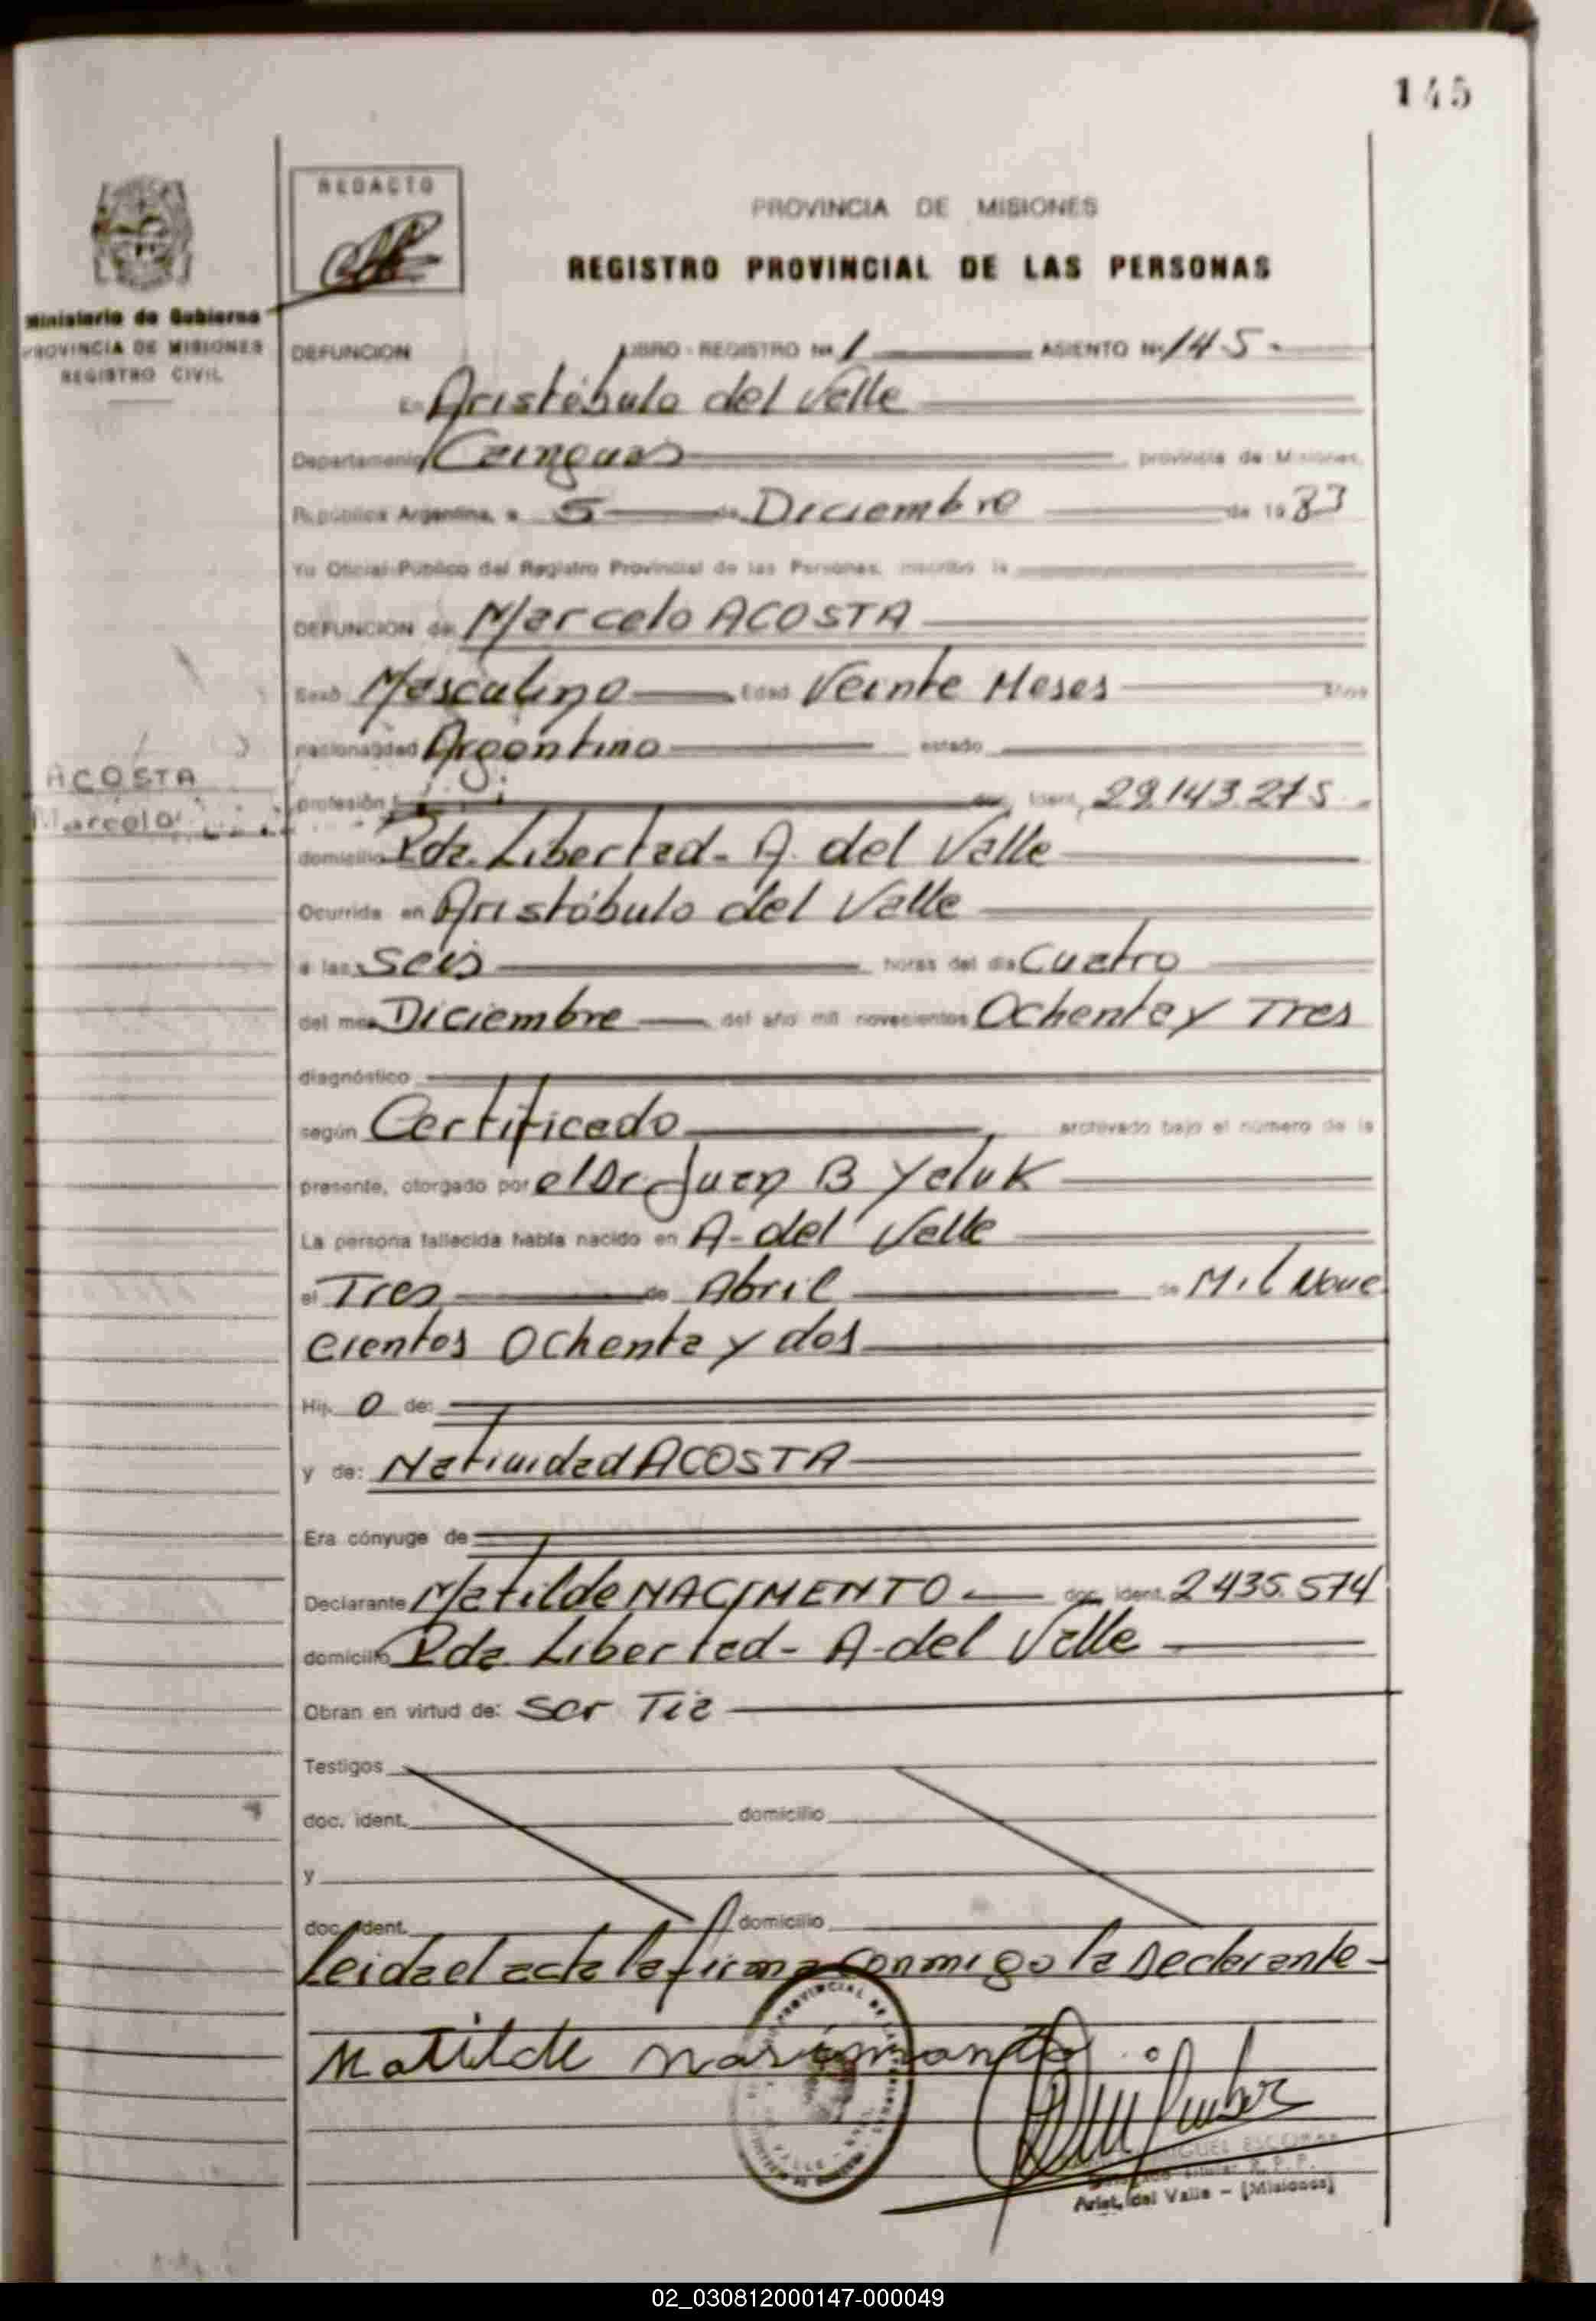 145
REDACTO
PROVINCIA DE MISIONES
REGISTRO PROVINCIAL DE LAS PERSONAS
Ministerio de Gobierno
PROVINCIA DE MISIONES
REGISTRO CIVIL
DEFUNCION LIBRO - REGISTRO Nº 1 ASIENTO Nº 145-
En Aristóbulo del Valle
Departamento Cainguas, provincia de Misiones,
República Argentina, a 5 de Diciembre de 1983
Yo Oficial Público del Registro Provincial de las Personas, inscribo la
DEFUNCION de: Marcelo ACOSTA
Sexo Masculino Edad Veinte Meses Años
nacionalidad Argentino estado
ACOSTA
Marcelo
profesión doc. Ident. 29.143.275
domicilio Pda. Libertad - A. del Valle
Ocurrida en Aristóbulo del Valle
a las Seis horas del día Cuatro
del mes Diciembre del año mil novecientos Ochenta y Tres
diagnóstico
según Certificado, archivado bajo el número de la
presente, otorgado por el Dr. Juan B Yaluk
La persona fallecida había nacido en A- del Valle
el Tres de Abril de Mil Nove
cientos Ochenta y dos
Hij o de:
y de: Natividad ACOSTA
Era cónyuge de
Declarante Matilde NACIMENTO doc. ident. 2.435.574
domicilio Pda. Libertad - A- del Valle
Obran en virtud de: Ser Tia
Testigos
doc. ident. domicilio
y
doc. ident. domicilio
Leida el acta la firma conmigo la Declarante-
Matilde
MIGUEL ESCOBAR
Titular R. P. P.
Arist. del Valle - (Misiones)
02_030812000147-000049